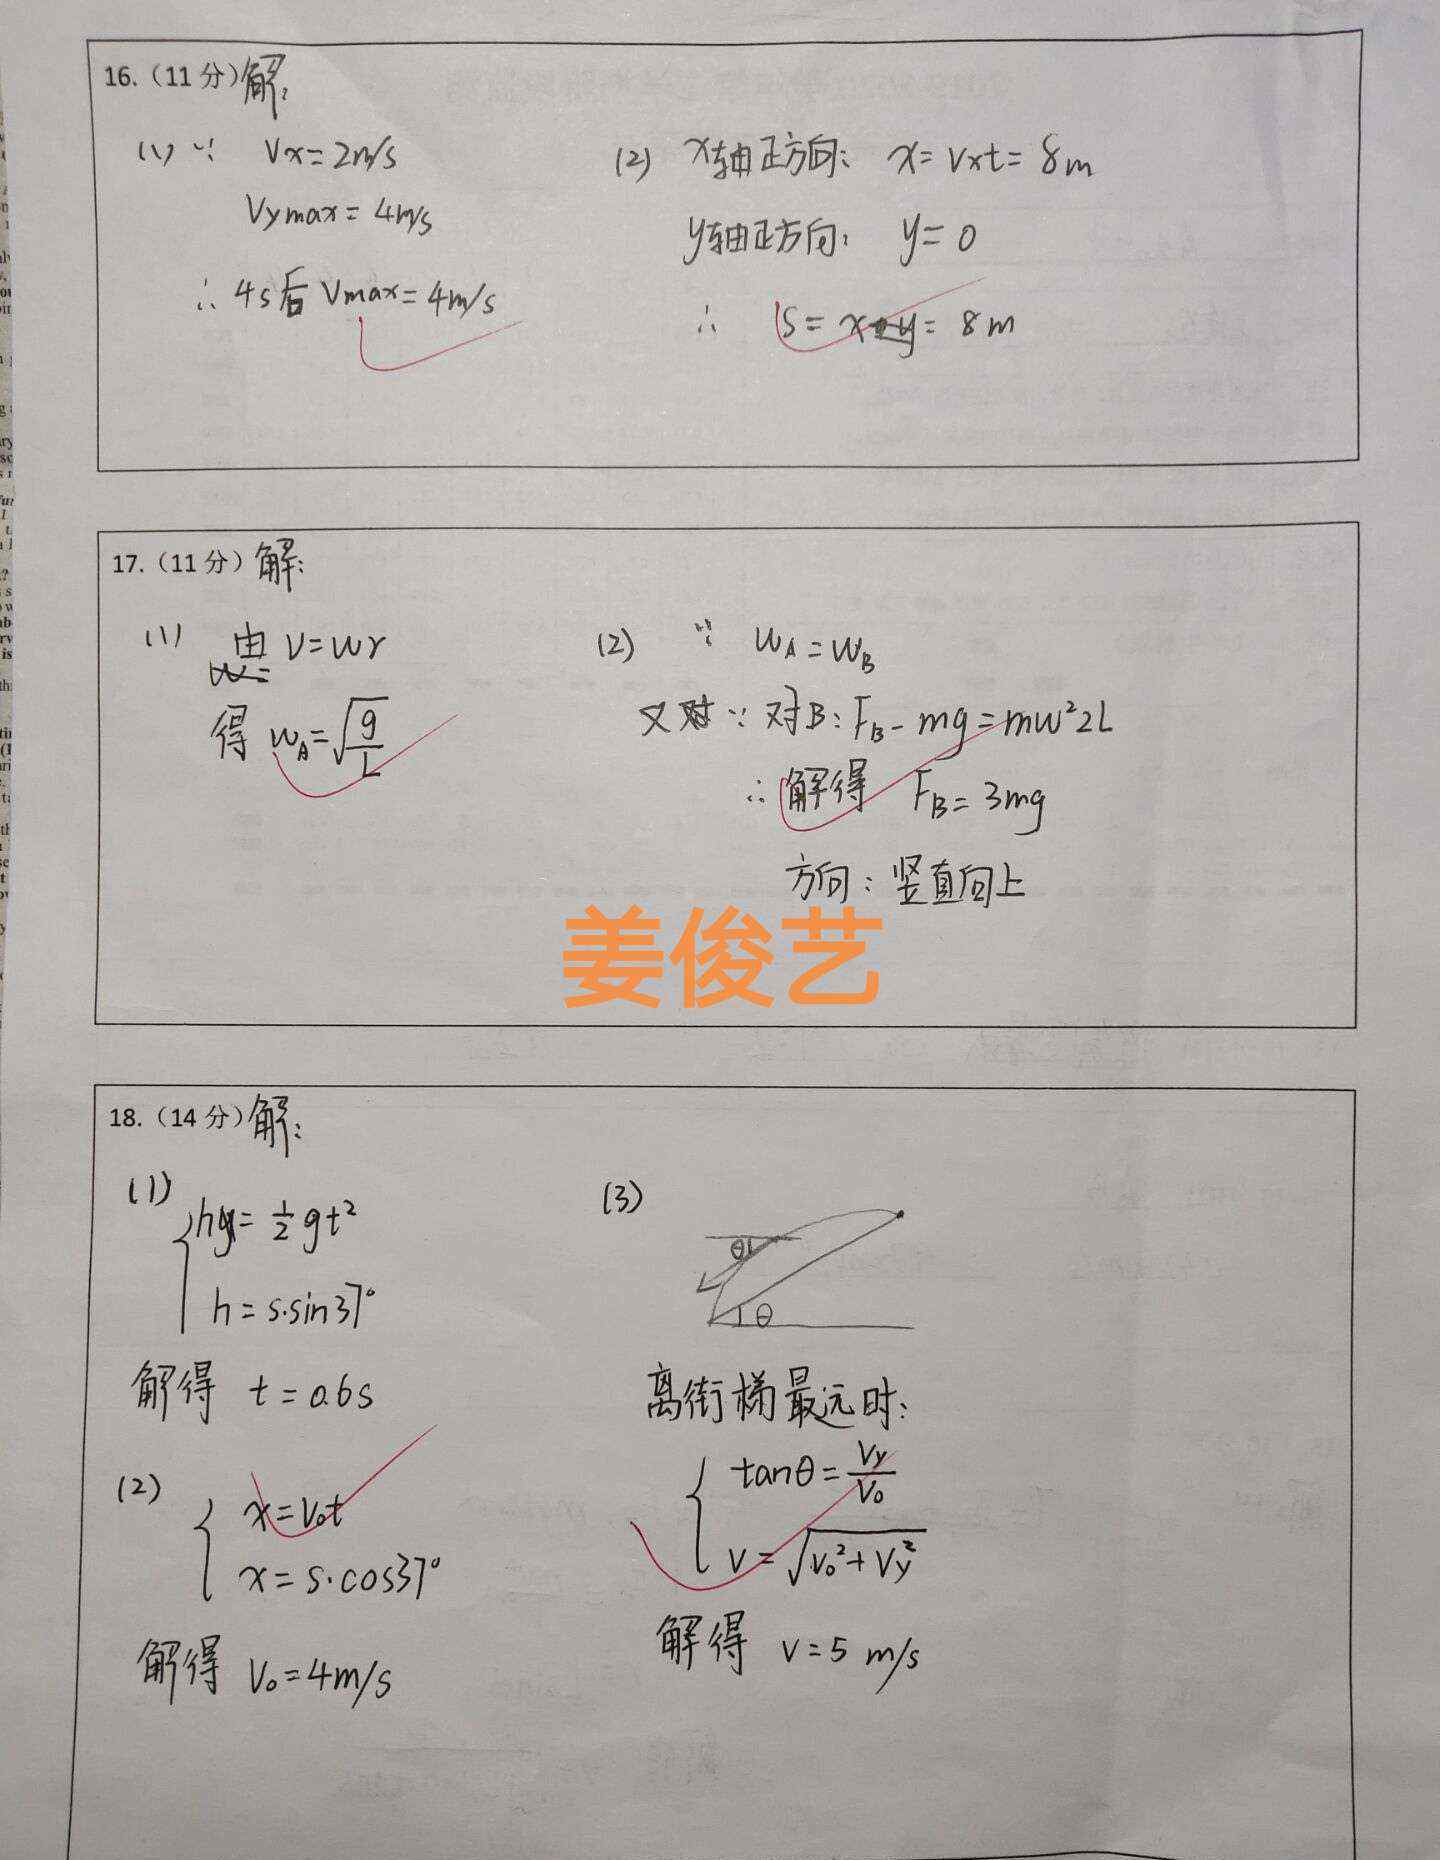 16.（11 分）解：
(1) ∵ Vx=2m/s
Vymax=4m/s
∴ 4s后 Vmax=4m/s
(2) x轴正方向： x=Vxt=8m
y轴正方向： y=0
∴ S=x y=8m
17.（11 分）解：
(1) 由 V=wr
得 wA=√(g/L)
(2) ∵ wA=wB
又 ∵ 对B：FB-mg=mw²2L
∴ 解得 FB=3mg
方向：竖直向上
姜俊艺
18.（14 分）解：
(1) h=½gt²
h=s·sin37°
解得 t=0.6s
(2) x=V₀t
x=s·cos37°
解得 V₀=4m/s
(3)
θ
θ
离街梯最远时：
tanθ=Vy/V₀
V=√(V₀²+Vy²)
解得 V=5 m/s